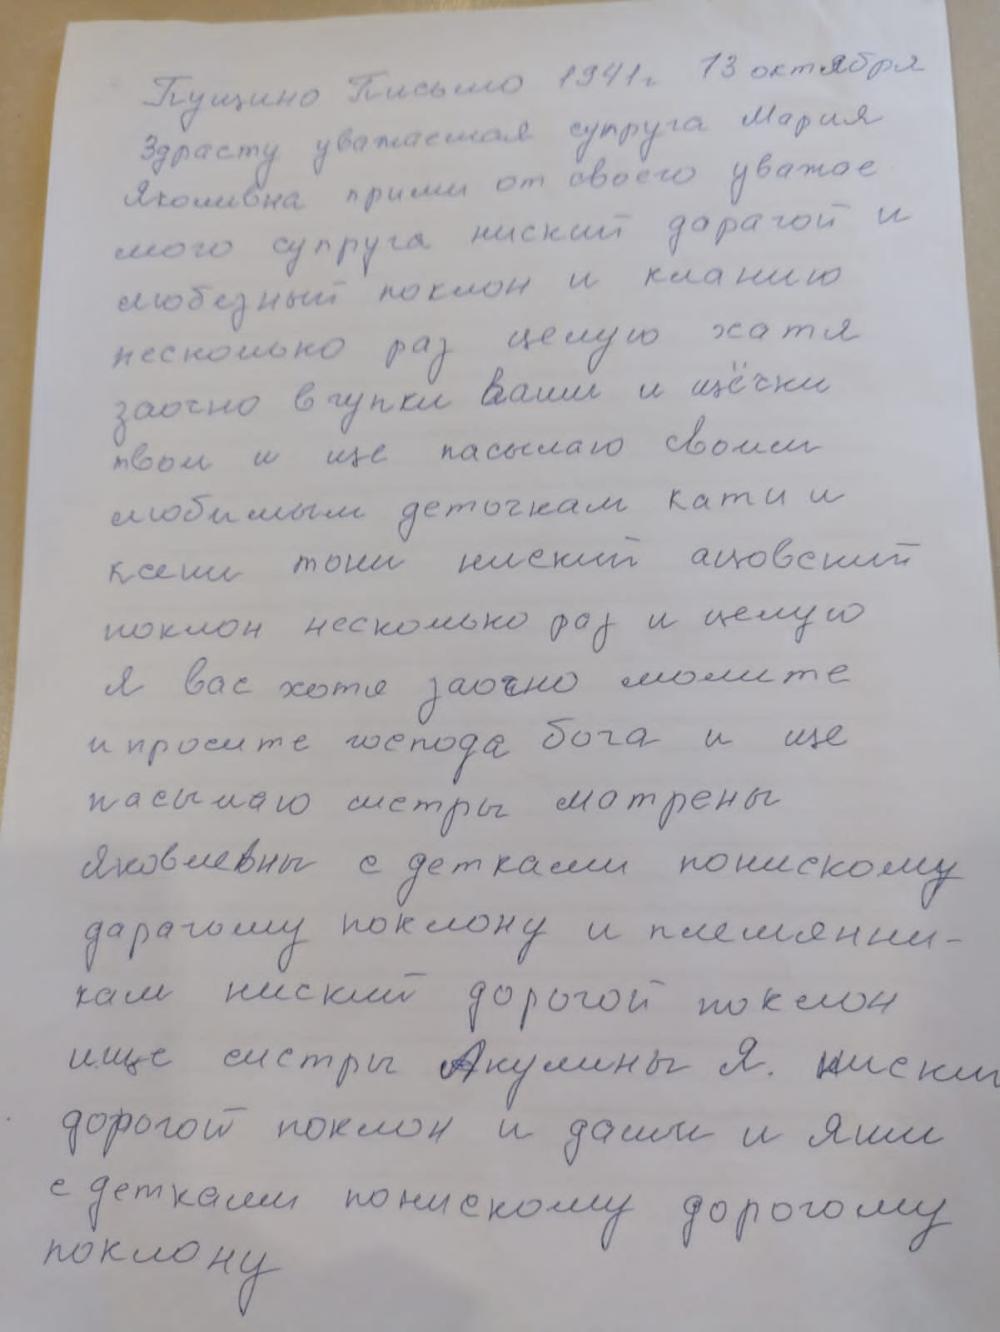 Пущино Письмо 1941г 13 октября
Здрасту уважаемая супруга Мария
Якомивна прими от своего уважае
мого супруга ниский дарагой и
любезный поклон и кланию
несколько раз целую хатя
заочно в гупки Ваши и щёчки
твои и ище пасылаю своим
любимым деточкам кати и
ксени тони ниский ацовский
поклон несколько раз и целую
Я вас хотя заочно молите
и просите господа бога и ище
пасылаю систры матрены
Яковлевны с детками понискому
дарагому поклону и племянни-
кам ниский дорогой поклон
ище систры Акулины Я. ниский
дорогой поклон и даши и Яши
с детками понискому дорогому
поклону